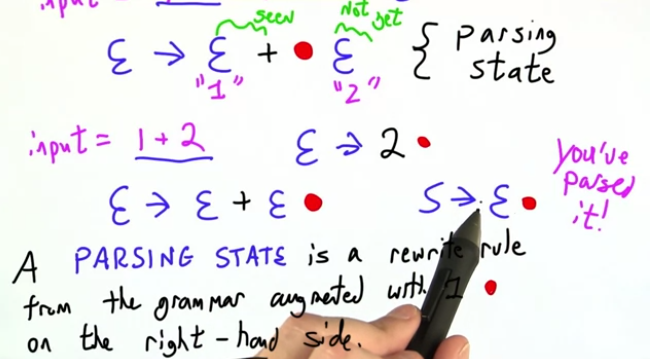 input =
seen
Not yet
Ɛ → Ɛ + • Ɛ { Parsing state
"1" "2"
input = 1 + 2 Ɛ → 2 •
Ɛ → Ɛ + Ɛ • S → Ɛ •
you've
parsed
it!
A PARSING STATE is a rewrite rule
from the grammar augmented with 1 •
on the right-hand side.